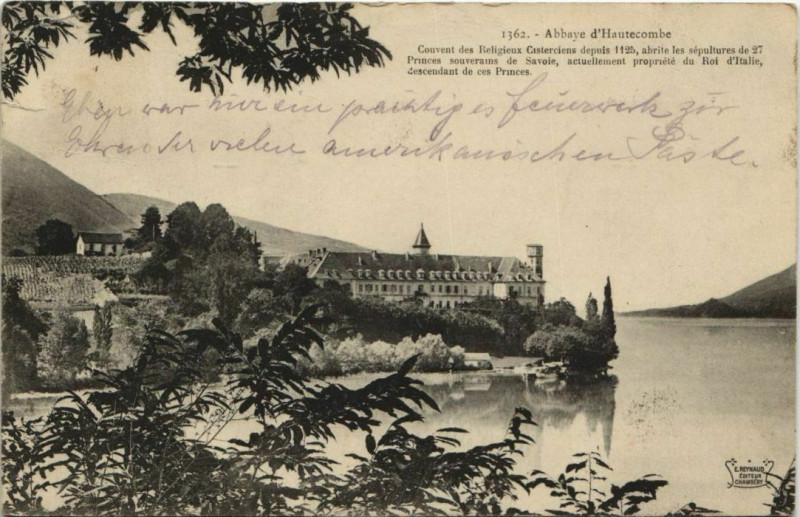 1362. - Abbaye d'Hautecombe
Couvent des Religieux Cisterciens depuis 1125, abrite les sépultures de 27
Princes souverains de Savoie, actuellement propriété du Roi d'Italie,
descendant de ces Princes.
Eben war hier ein prächtiges Feuerwerk zur
Ehren der vielen amerikanischen Gäste.
E. REYNAUD
ÉDITEUR
CHAMBÉRY